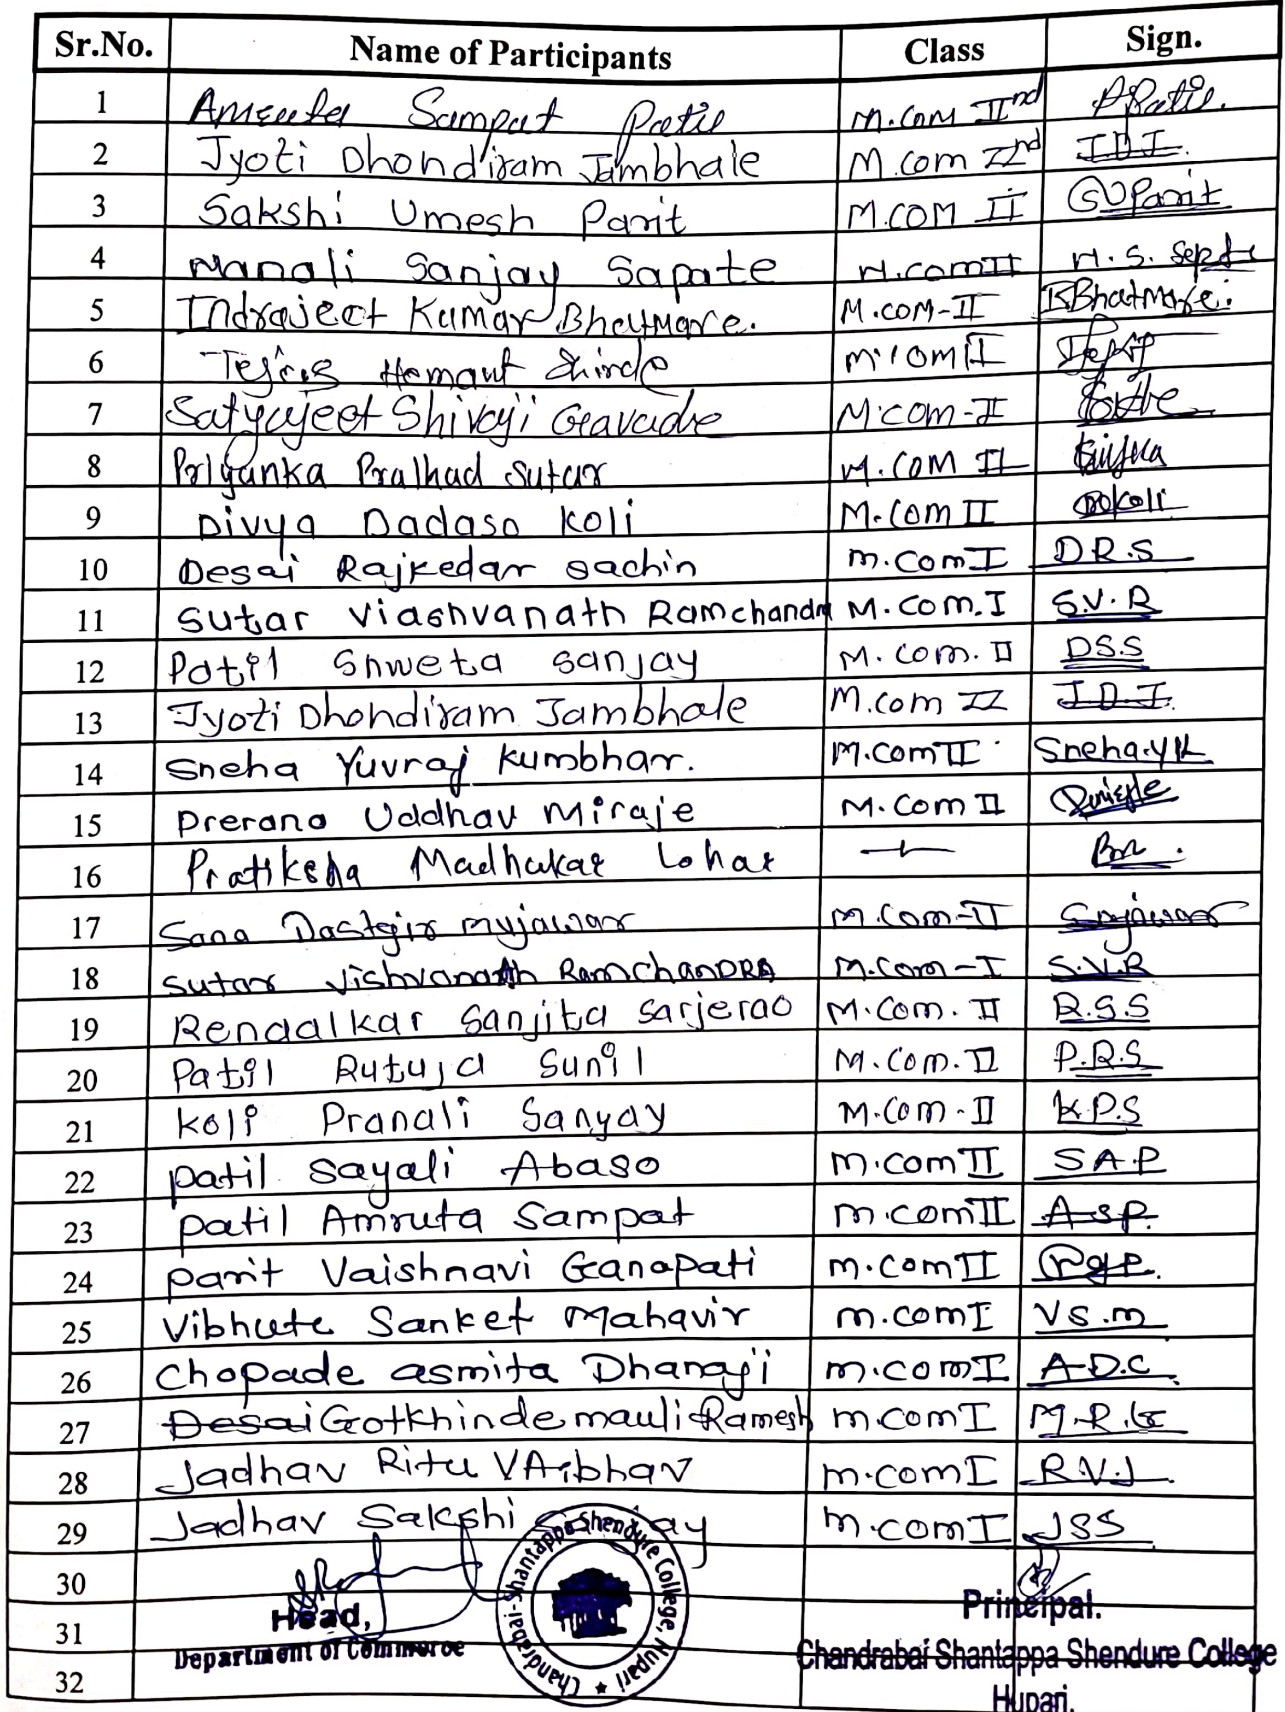 Sr.No. Name of Participants Class Sign.
1 Amruta Sampat Patil M.com IInd APatil.
2 Jyoti Dhondiram Jambhale M.com IInd J.D.J.
3 Sakshi Umesh Parit M.COM II SUParit
4 Manali Sanjay Sapate M.com II M.S. Sapate
5 Indrajeet Kumar Bhatmare. M.COM-II KBhatmare.
6 Tejas Hemant Shinde M.com II
7 Satyajeet Shivaji Gavade M.com-II
8 Priyanka Pralhad Sutar M.COM II
9 Divya Dadaso Koli M.Com II DDKoli
10 Desai Rajkedar Sachin M.com I D.R.S
11 Sutar Viashvanath Ramchandra M.Com.I S.V.R
12 Patil Shweta Sanjay M.com.II DSS
13 Jyoti Dhondiram Jambhale M.com II J.D.J.
14 Sneha Yuvraj Kumbhar. M.com II Sneha.Y.K
15 Prerana Uddhav Miraje M.Com II
16 Pratiksha Madhukar Lohar
17 Sana Dastgir mujawar M.Com-II Smjawar
18 Sutar Vishvanath RamchanDRA M.com-I S.V.R
19 Rendalkar Sanjita Sarjerao M.com.II R.S.S
20 Patil Rutuja Sunil M.com.II P.R.S
21 Koli Pranali Sanjay M.Com-II K.P.S
22 Patil Sayali Abaso M.com II S.A.P
23 Patil Amruta Sampat M.com II A.S.P.
24 Parit Vaishnavi Ganapati M.com II
25 Vibhute Sanket Mahavir M.com I VS.m
26 Chopade asmita Dhanaji M.com I A.D.C.
27 Desai Gotkhinde mauli Ramesh M.com I M.R.G
28 Jadhav Ritu VAibhav M.com I R.V.J
29 Jadhav Sakshi M.com I JSS
30
31
32
Head,
Department of Commerce
Chandrabai-Shantappa Shendure College, Hupari
Principal.
Chandrabai Shantappa Shendure College
Hupari.